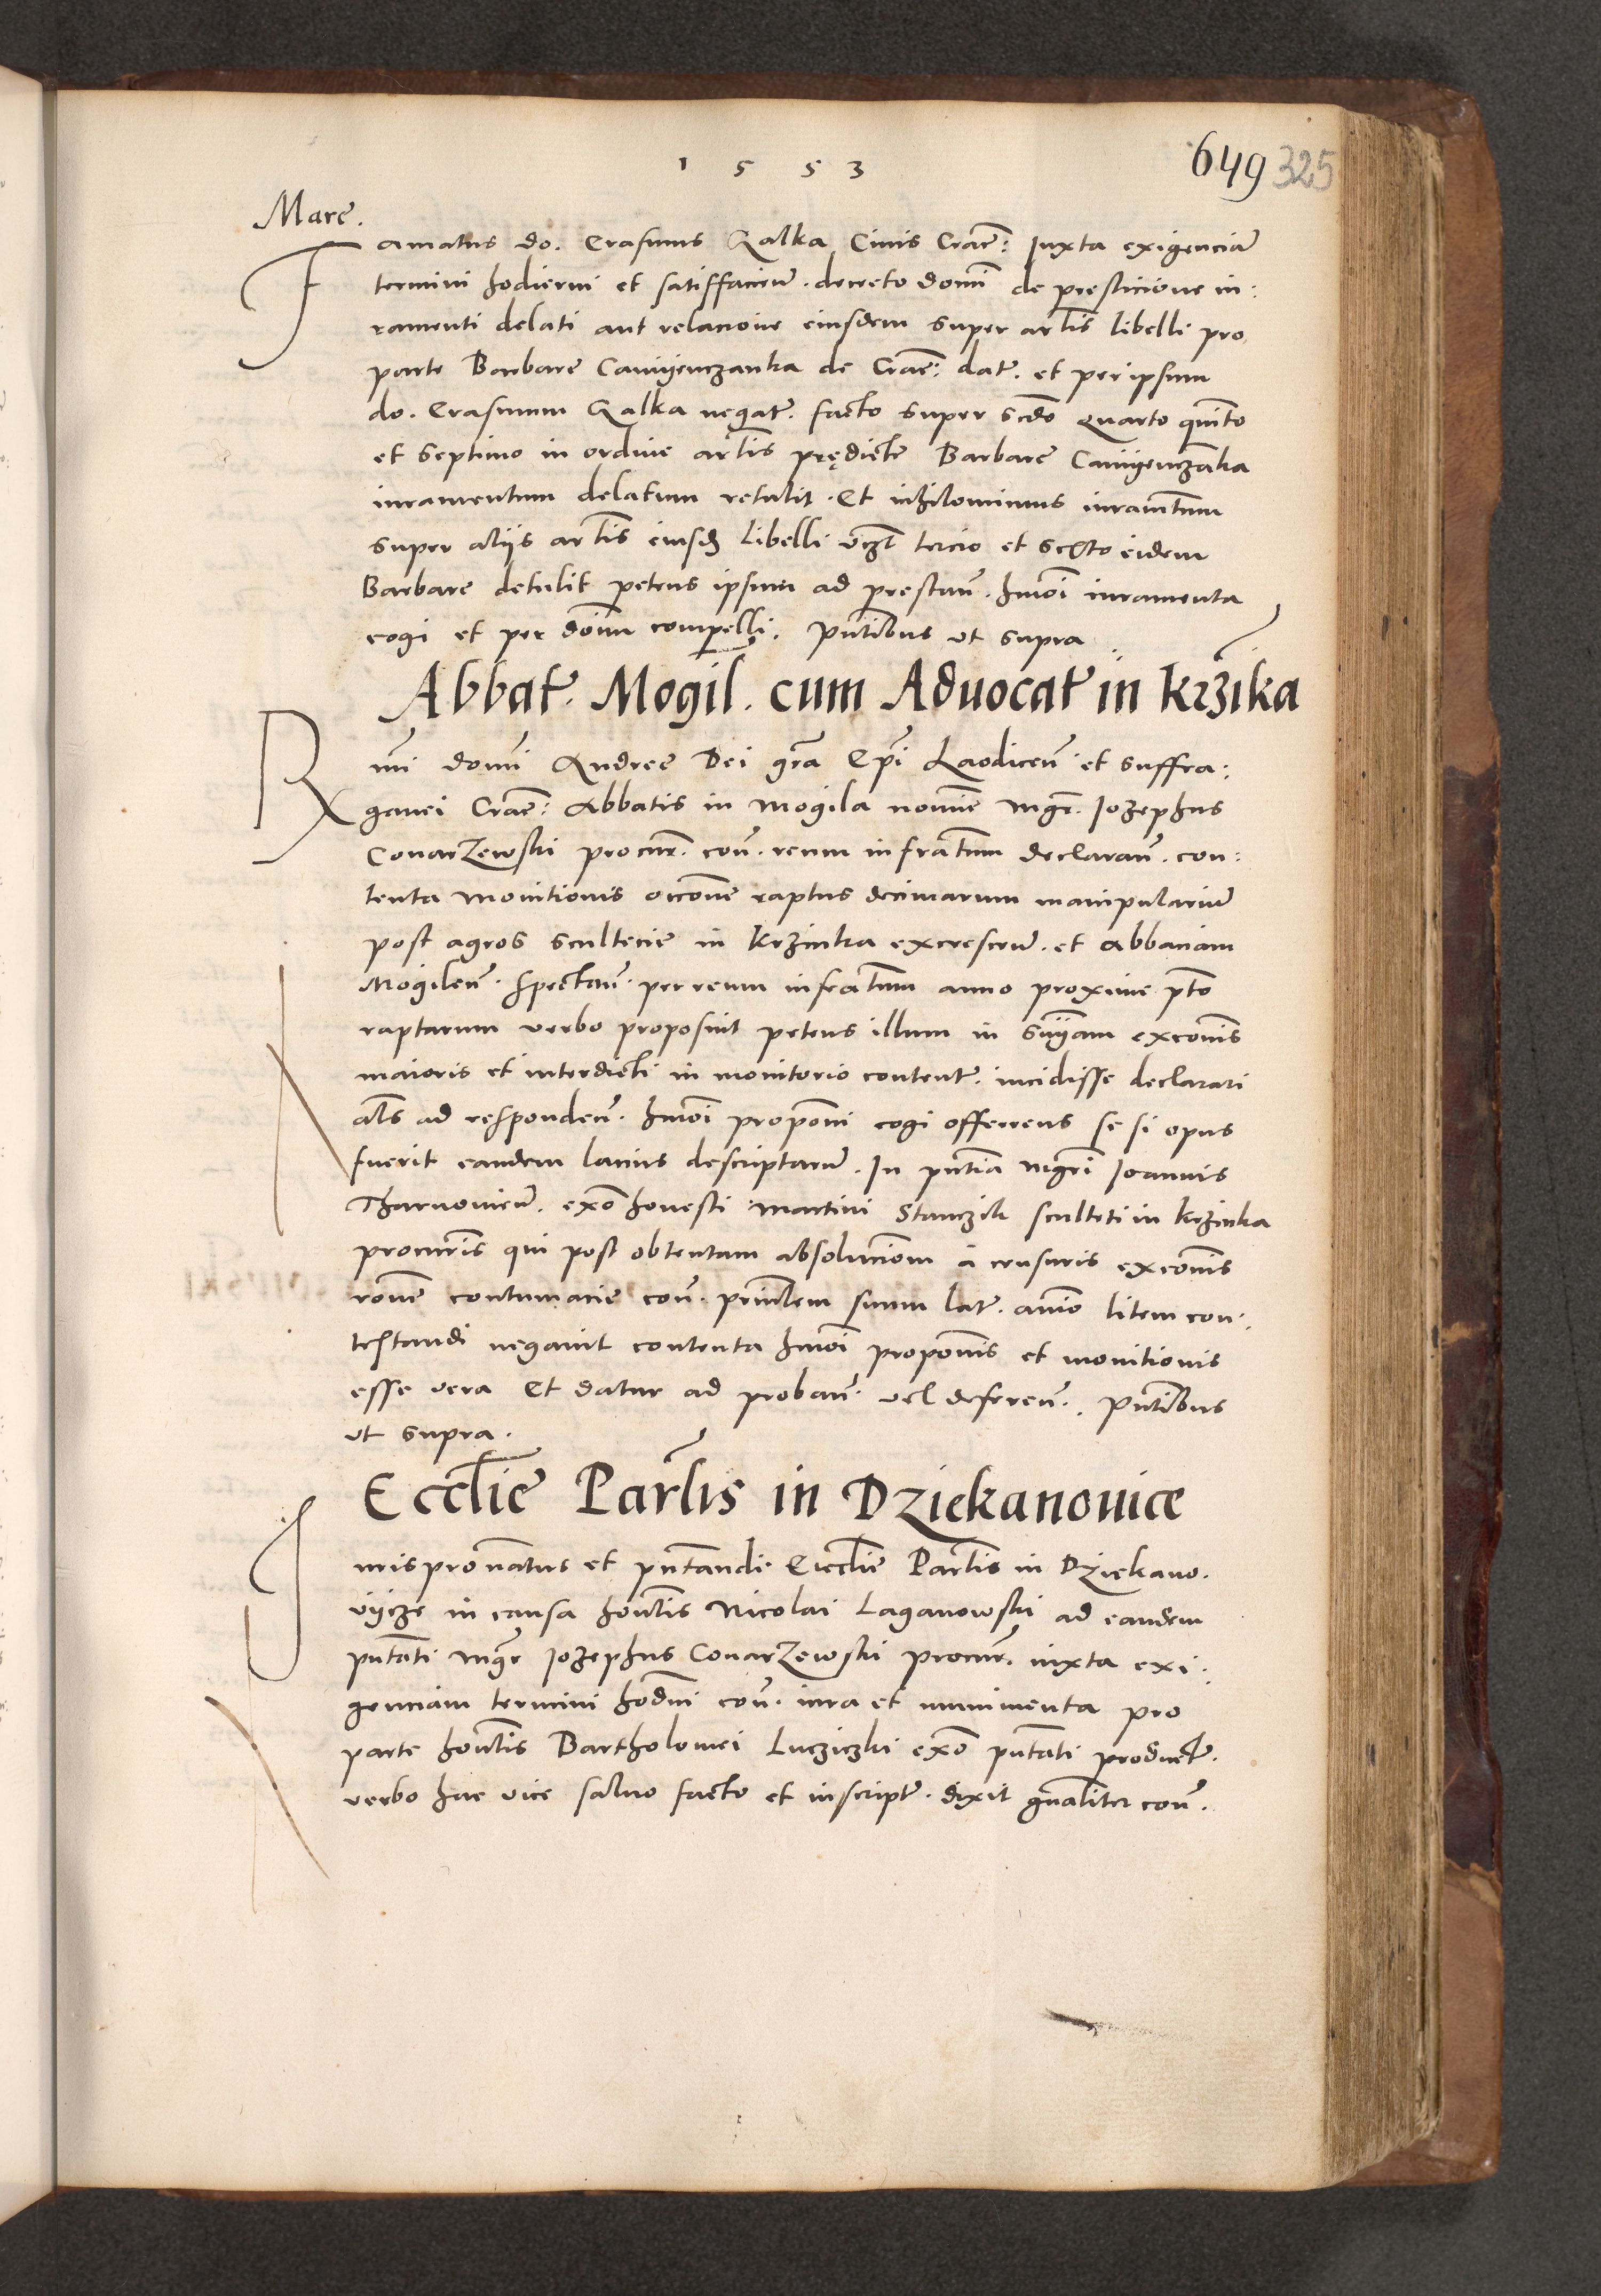 1 5 5 3
649 325
Marc̄.
Famatus do. Erasmus Gałka Civis Crac̄: Iuxta exigenciā
termini hodierni et satiffacien̄. decreto domī de prestacione iu:
ramenti delati aut relacione eiusdem super artlīs libelli pro
parte Barbare Camyenczanka de Crac̄: dat̄. et per ipsum
do. Erasmum Galka negat̄. facto super scdō quarto quīto
et septimo in ordine artlīs prędicte Barbare Camyenczāka
iuramentum delatum retulit. Et nihilominus iuramētum
super alijs artlīs eiusdē libelli vczt̄ tercio et sexto eidem
Barbare detulit petens ipsum ad prestan̄. hmōi iuramenta
cogi et per dom̄ compelli. pn̄tibus ut supra
Abbat̄. Mogil. cum Aduocat̄ in Krzīka
Rmī domī Andree Dei grā Epī Laodicen̄ et suffra:
ganei Crac̄: Abbatis in Mogila nomīe mgr̄. Iozephus
ConarZewski procur̄. con̄. reum infrātum declaran̄. con:
tenta monitionis occōne raptus decimarum manipulariū
post agros scultecie in Krzinka excrescen̄. et Abbaciam
Mogilen̄. spectan̄. per reum infrātum anno proxime pt̄o
raptarum verbo proposuit petens illum in snīam excōnis
maioris et interdicti in monitorio content̄. incidisse declarari
als̄ ad responden̄. hmōi propōni cogi offerens se si opus
fuerit eandem lacius descripturū. In pn̄tia mgrī Ioannis
Tharnowien̄. exō honesti Martini Stanczik sculteti in Krzinka
procurīs qui post obtentam absolucionem a censuris excōnis
rōne contumacie con̄. prin̄lem suum lat̄. animo litem con:
testandi negauit contenta hmōi propōnis et monitionis
esse vera Et datur ad proban̄. vel deferen̄. pn̄tibus
ut supra.
Eccłie Parlīs in Dziekanouice
Iurispronatus et pn̄tandi Eccłie Parlīs in Dziekano.
vijcze in causa honlīs Nicolai Laganowski ad eandem
pn̄tati mgr̄ Iozephus ConarZewski procur̄. iuxta exi:
genciam termini hodnī con̄. iura et munimenta pro
parte honlīs Bartholomei Lucziczki exō pn̄tati product̄.
verbo hac vice saluo facto et inscript̄. dixit gn̄aliter con̄.